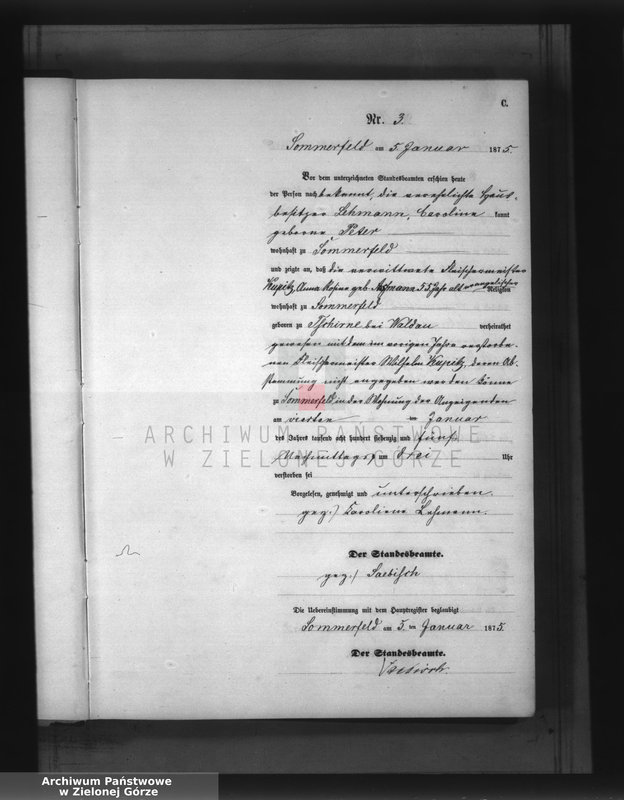 C.
Nr. 3.
Sommerfeld am 5. Januar 1875.
Vor dem unterzeichneten Standesbeamten erschien heute
der Person nach bekannt, die verehelichte Haus-
besitzer Lehmann, Caroline kannt
geborne Peter
wohnhaft zu Sommerfeld
und zeigte an, daß die verwittwete Fleischermeister
Kupitz, Anna Rosine geb. 55 Jahr alt evangelischer Religion
wohnhaft zu Sommerfeld
geboren zu Tschirne bei Waldau verheirathet
gewesen mit dem im vorigen Jahre verstorbe-
nen Fleischermeister Wilhelm Kupitz, deren Ab-
stammung nicht angegeben werden könne
zu Sommerfeld, in der Wohnung der Anzeigenden
am vierten Januar
des Jahres tausend acht hundert siebenzig und fünf
Nachmittags um drei Uhr
verstorben sei
Vorgelesen, genehmigt und unterschrieben.
gez.) Karoliene Lehmann.
Der Standesbeamte.
gez.) Saebisch
Die Uebereinstimmung mit dem Hauptregister beglaubigt
Sommerfeld am 5. ten Januar 1875.
Der Standesbeamte.
Saebisch.
ARCHIWUM PAŃSTWOWE
W ZIELONEJ GÓRZE
Archiwum Państwowe
w Zielonej Górze